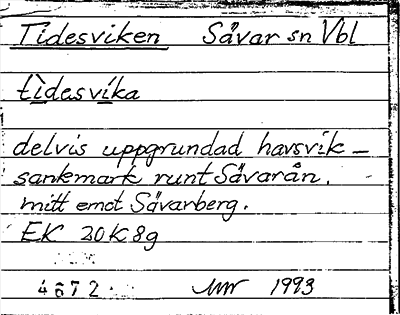 Tidesviken Sävar sn Vbl
tìdesvíka
delvis uppgrundad havsvik –
sankmark runt Sävarån,
mitt emot Sävarberg.
EK 20K8g
4672 1993